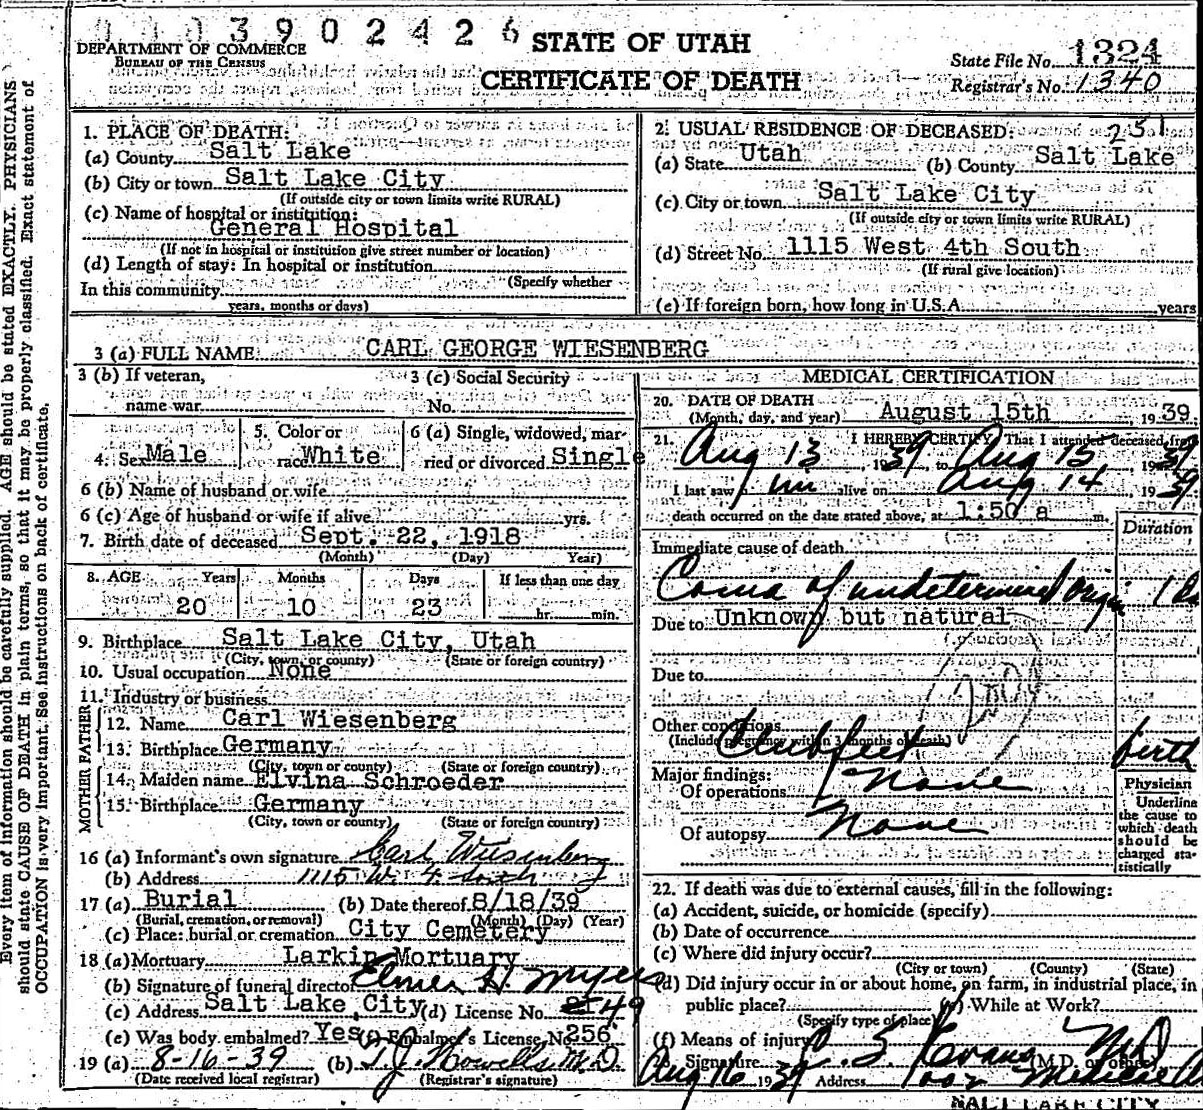 0003902426
DEPARTMENT OF COMMERCE
BUREAU OF THE CENSUS
STATE OF UTAH
CERTIFICATE OF DEATH
State File No. 1324
Registrar's No. 1340
Every item of information should be carefully supplied. AGE should be stated EXACTLY. PHYSICIANS
should state CAUSE OF DEATH in plain terms, so that it may be properly classified. Exact statement of
OCCUPATION is very important. See instructions on back of certificate.
1. PLACE OF DEATH:
(a) County Salt Lake
(b) City or town Salt Lake City
(If outside city or town limits write RURAL)
(c) Name of hospital or institution:
General Hospital
(If not in hospital or institution give street number or location)
(d) Length of stay: In hospital or institution
(Specify whether
In this community
years, months or days)
2. USUAL RESIDENCE OF DECEASED: 251
(a) State Utah (b) County Salt Lake
(c) City or town Salt Lake City
(If outside city or town limits write RURAL)
(d) Street No. 1115 West 4th South
(If rural give location)
(e) If foreign born, how long in U.S.A. years
3 (a) FULL NAME CARL GEORGE WIESENBERG
3 (b) If veteran,
name war
3 (c) Social Security
No.
4. Sex Male
5. Color or
race White
6 (a) Single, widowed, mar-
ried or divorced Single
6 (b) Name of husband or wife
6 (c) Age of husband or wife if alive yrs.
7. Birth date of deceased Sept. 22, 1918
(Month) (Day) Year)
8. AGE Years Months Days If less than one day
20 10 23 hr. min.
9. Birthplace Salt Lake City, Utah
(City, town, or county) (State or foreign country)
10. Usual occupation None
11. Industry or business
FATHER
12. Name Carl Wiesenberg
13. Birthplace Germany
(City, town or county) (State or foreign country)
MOTHER
14. Maiden name Elvina Schroeder
15. Birthplace Germany
(City, town or county) (State or foreign country)
16 (a) Informant's own signature Carl Wiesenberg
(b) Address 1115 W. 4. South
17 (a) Burial (b) Date thereof 8/18/39
(Burial, cremation, or removal) (Month) (Day) (Year)
(c) Place: burial or cremation City Cemetery
18 (a) Mortuary Larkin Mortuary
(b) Signature of funeral director Elmer H. Myers
(c) Address Salt Lake City (d) License No. 49
(e) Was body embalmed? Yes (f) Embalmer's License No. 256
19 (a) 8-16-39 (b) T. J. Howells M.D.
(Date received local registrar) (Registrar's signature)
MEDICAL CERTIFICATION
20. DATE OF DEATH
(Month, day, and year) August 15th, 1939
21. I HEREBY CERTIFY, That I attended deceased from
Aug 13, 1939, to Aug 15, 1939
I last saw im alive on Aug 14, 1939
death occurred on the date stated above, at 1:50 a m.
Duration
Immediate cause of death
Coma of undetermined origin 1
Due to Unknown but natural
Due to
Other conditions Club feet birth
(Include pregnancy within 3 months of death)
Major findings:
Of operations None
Of autopsy None
Physician
Underline
the cause to
which death
should be
charged sta-
tistically
22. If death was due to external causes, fill in the following:
(a) Accident, suicide, or homicide (specify)
(b) Date of occurrence
(c) Where did injury occur?
(City or town) (County) (State)
(d) Did injury occur in or about home, on farm, in industrial place, in
public place? While at Work?
(Specify type of place)
(f) Means of injury
Signature C. S. Evans M.D.
(M.D. or other)
Aug 16 1939 Address
SALT LAKE CITY